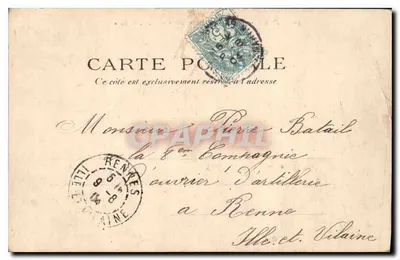 CARTE POSTALE
Ce côté est exclusivement réservé à l'adresse
Monsieur Pierre Batail
la 8em Compagnie
d'ouvrier d'artillerie
a Renne
Ille. et. Vilaine
RENNES
ILLE-ET-VILAINE
CPAPHIL